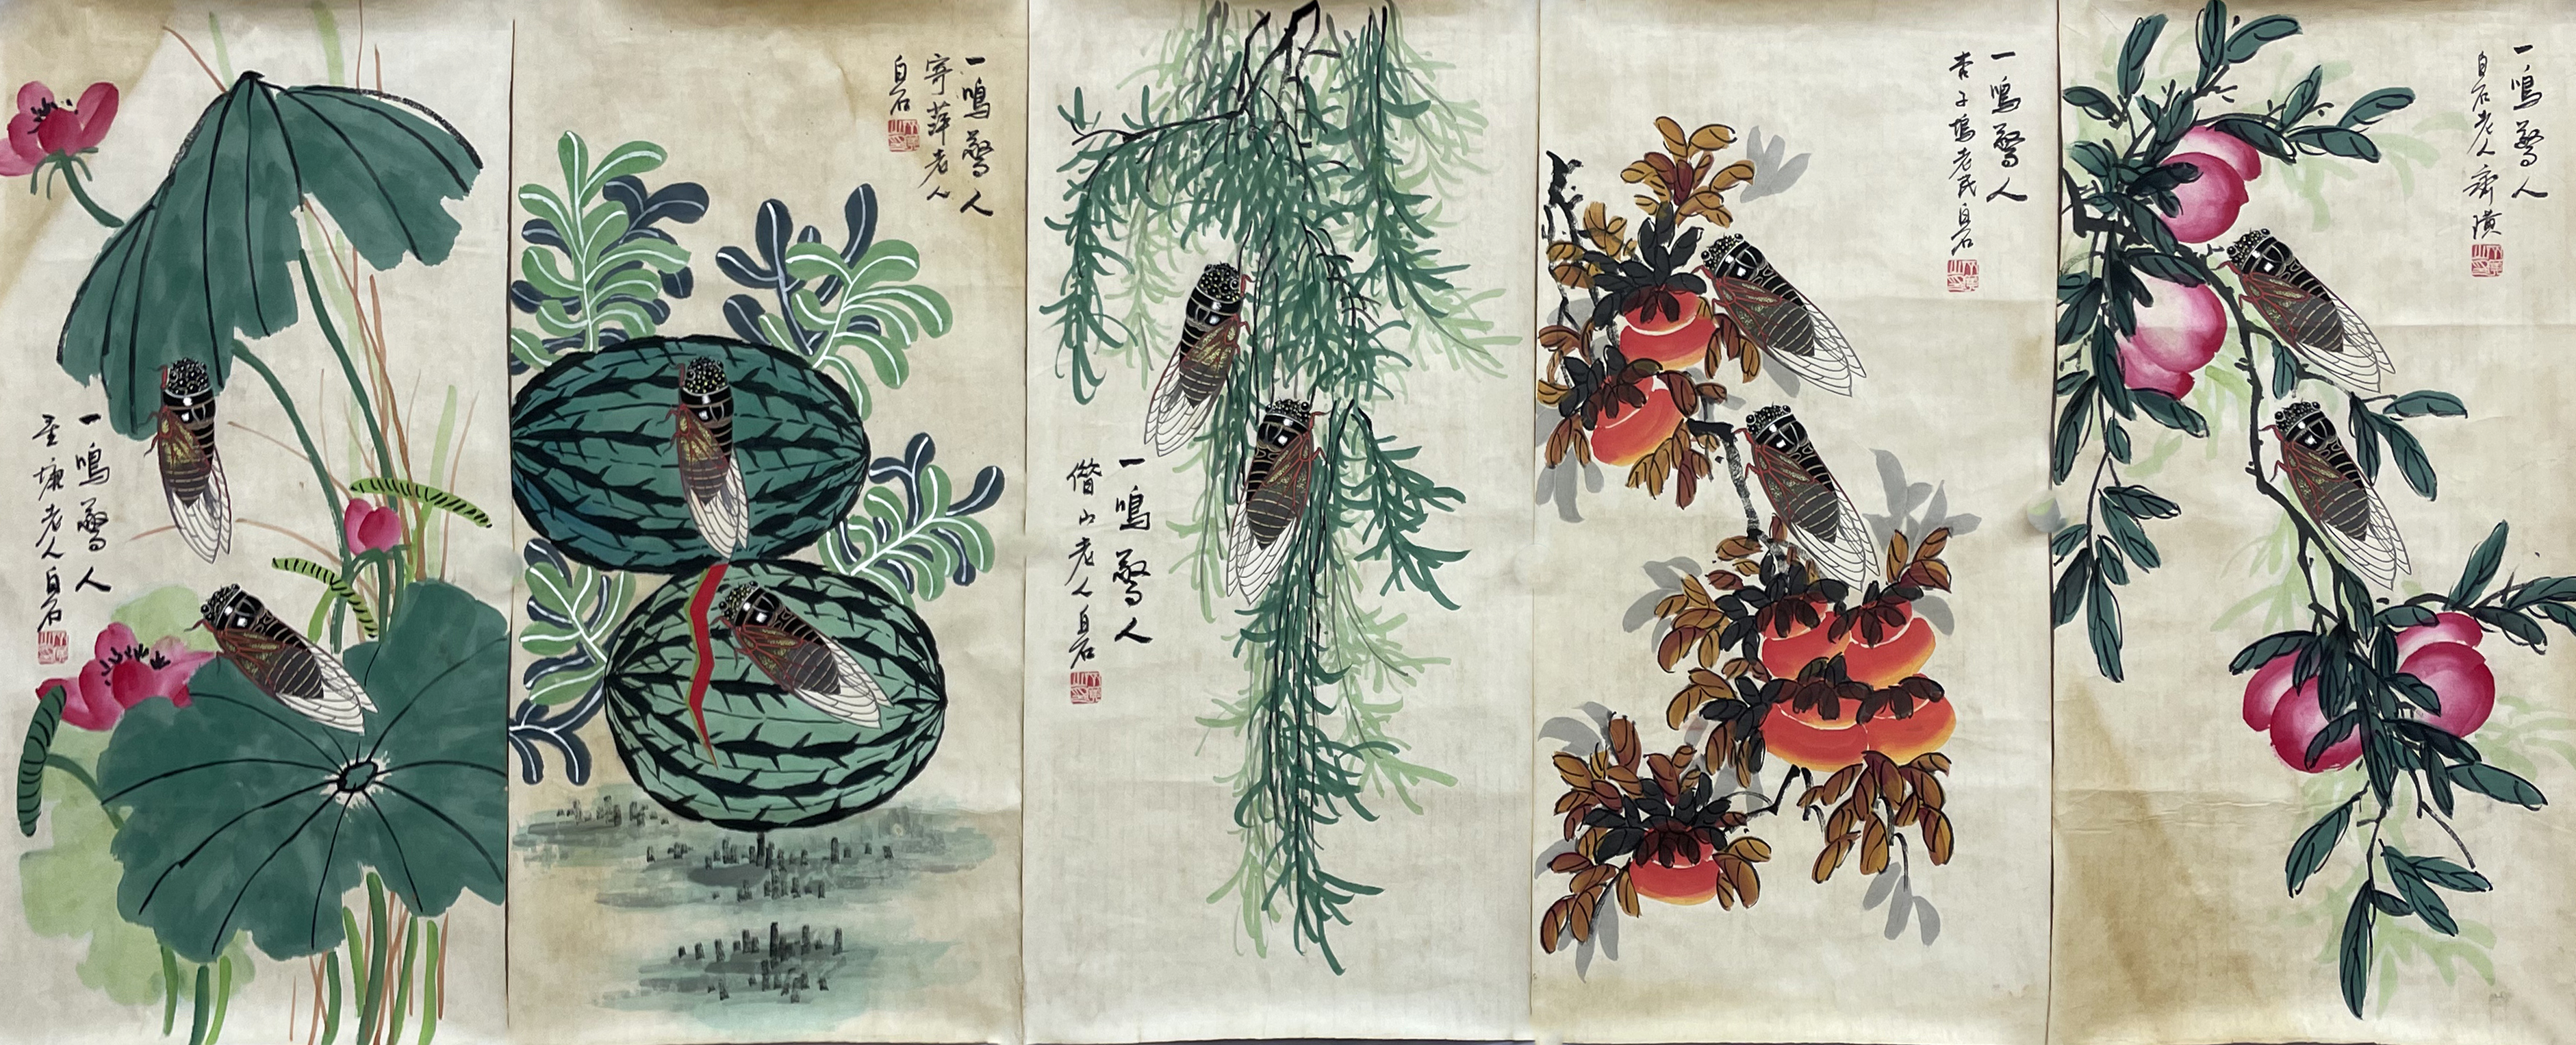 一鳴驚人
星塘老人白石
一鳴驚人
寄萍老人
白石
一鳴驚人
借山老人白石
一鳴驚人
杏子塢老民白石
一鳴驚人
白石老人齊璜